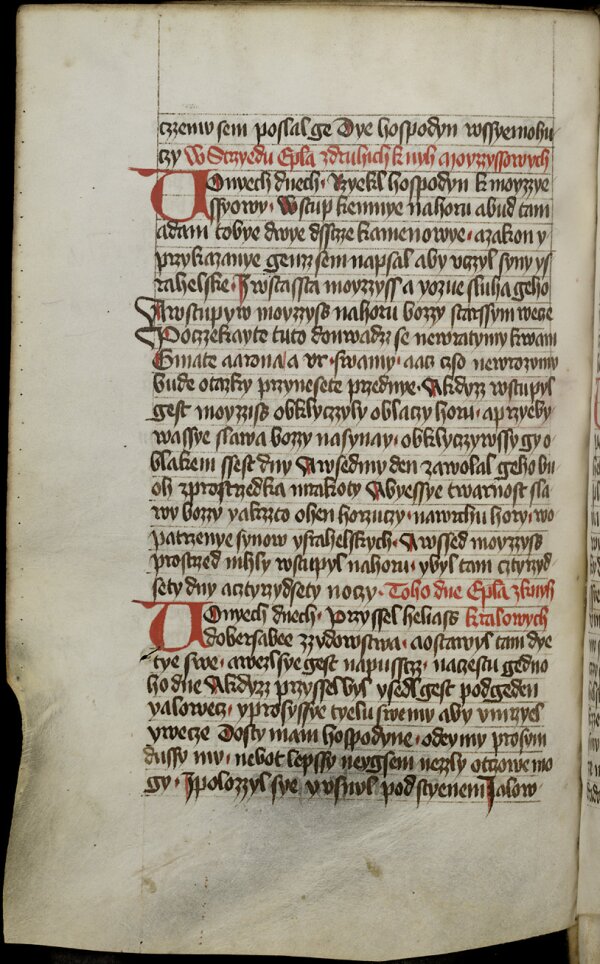 czemw sem poslal ge Dye hospodyn wssyemohu
czy W Strzyedu Epla zdruhich knyh moyzyssowych
W Onyech dnech · Rzyekl hospodyn k moyzye
ssyowy · Wstup kemnye nahoru abud tam
adam tobye dwye dsscze kamenowye · azakon y
przykazanye genz sem napsal aby vczyl syny ys
rahelske · I wstassta moyzyss a yozue sluha geho
Awstupyw moyzyss nahoru bozzy starssym wece
Poczekayte tuto donwadz se newratymy kwam
Gmate aarona a vr · swamy · aacz czso newrozymy
bude otazky przynesete przednye · Akdyzz wstupyl
gest moyziss obklyczyly oblaczy horu · aprzyeby
wassye slawa bozzy nasynay · obklyczywssy gy o
blakem ssest dny Awsedmy den zawolal geho bu
oh zprostrzedka mrakoty Abyessye twarnost sla
wy bozzy yakzto ohen horzuczy · nawrchu hory · wo
patrzenye synow ysrahelskych · Awssed moyzyss
prostrzed mhly wstupyl nahoru · ybyl tam cztyrzyd
sety dny acztyrzydsety noczy · Toho dne Epla zknyh
W Onyech dnech · Przyssel heliass kralowych
dobersabee zzydowstwa · aostawyl tam dye
tye swe · awezlsye gest napussczz · naczestu gedno
ho dne Akdyzz przyssel byl ysedl gest podgeden
yalowecz · yprosyssye tyelu swemu aby vmrzyel
ywecze Dosty mam hospodyne · odeymy prosym
dussy mu · nebot lepssy neygsem nezly otczowe mo
gy · Ipolozzyl sye yvsnul pod styenem Jalow